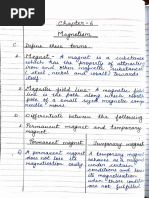 Chapter - 6
Magnetism
C. Define these terms.
1. Magnet - A magnet is a substance
which has the property of attracting
iron and other magnetic substances
(steel, nickel and cobalt) towards
itself
2. Magnetic field line - A magnetic field
line is the path along which
of a small sized magnetic
needle moves.
D. Differentiate between the following
1. Permanent magnet and temporary
magnet.
Permanent magnet
Temporary magnet
A permanent magnet
does not lose its
magnetisation easily
behaves as a magnet
under certain
conditions and loses
its magnetisation
when these conditions
are not fulfilled